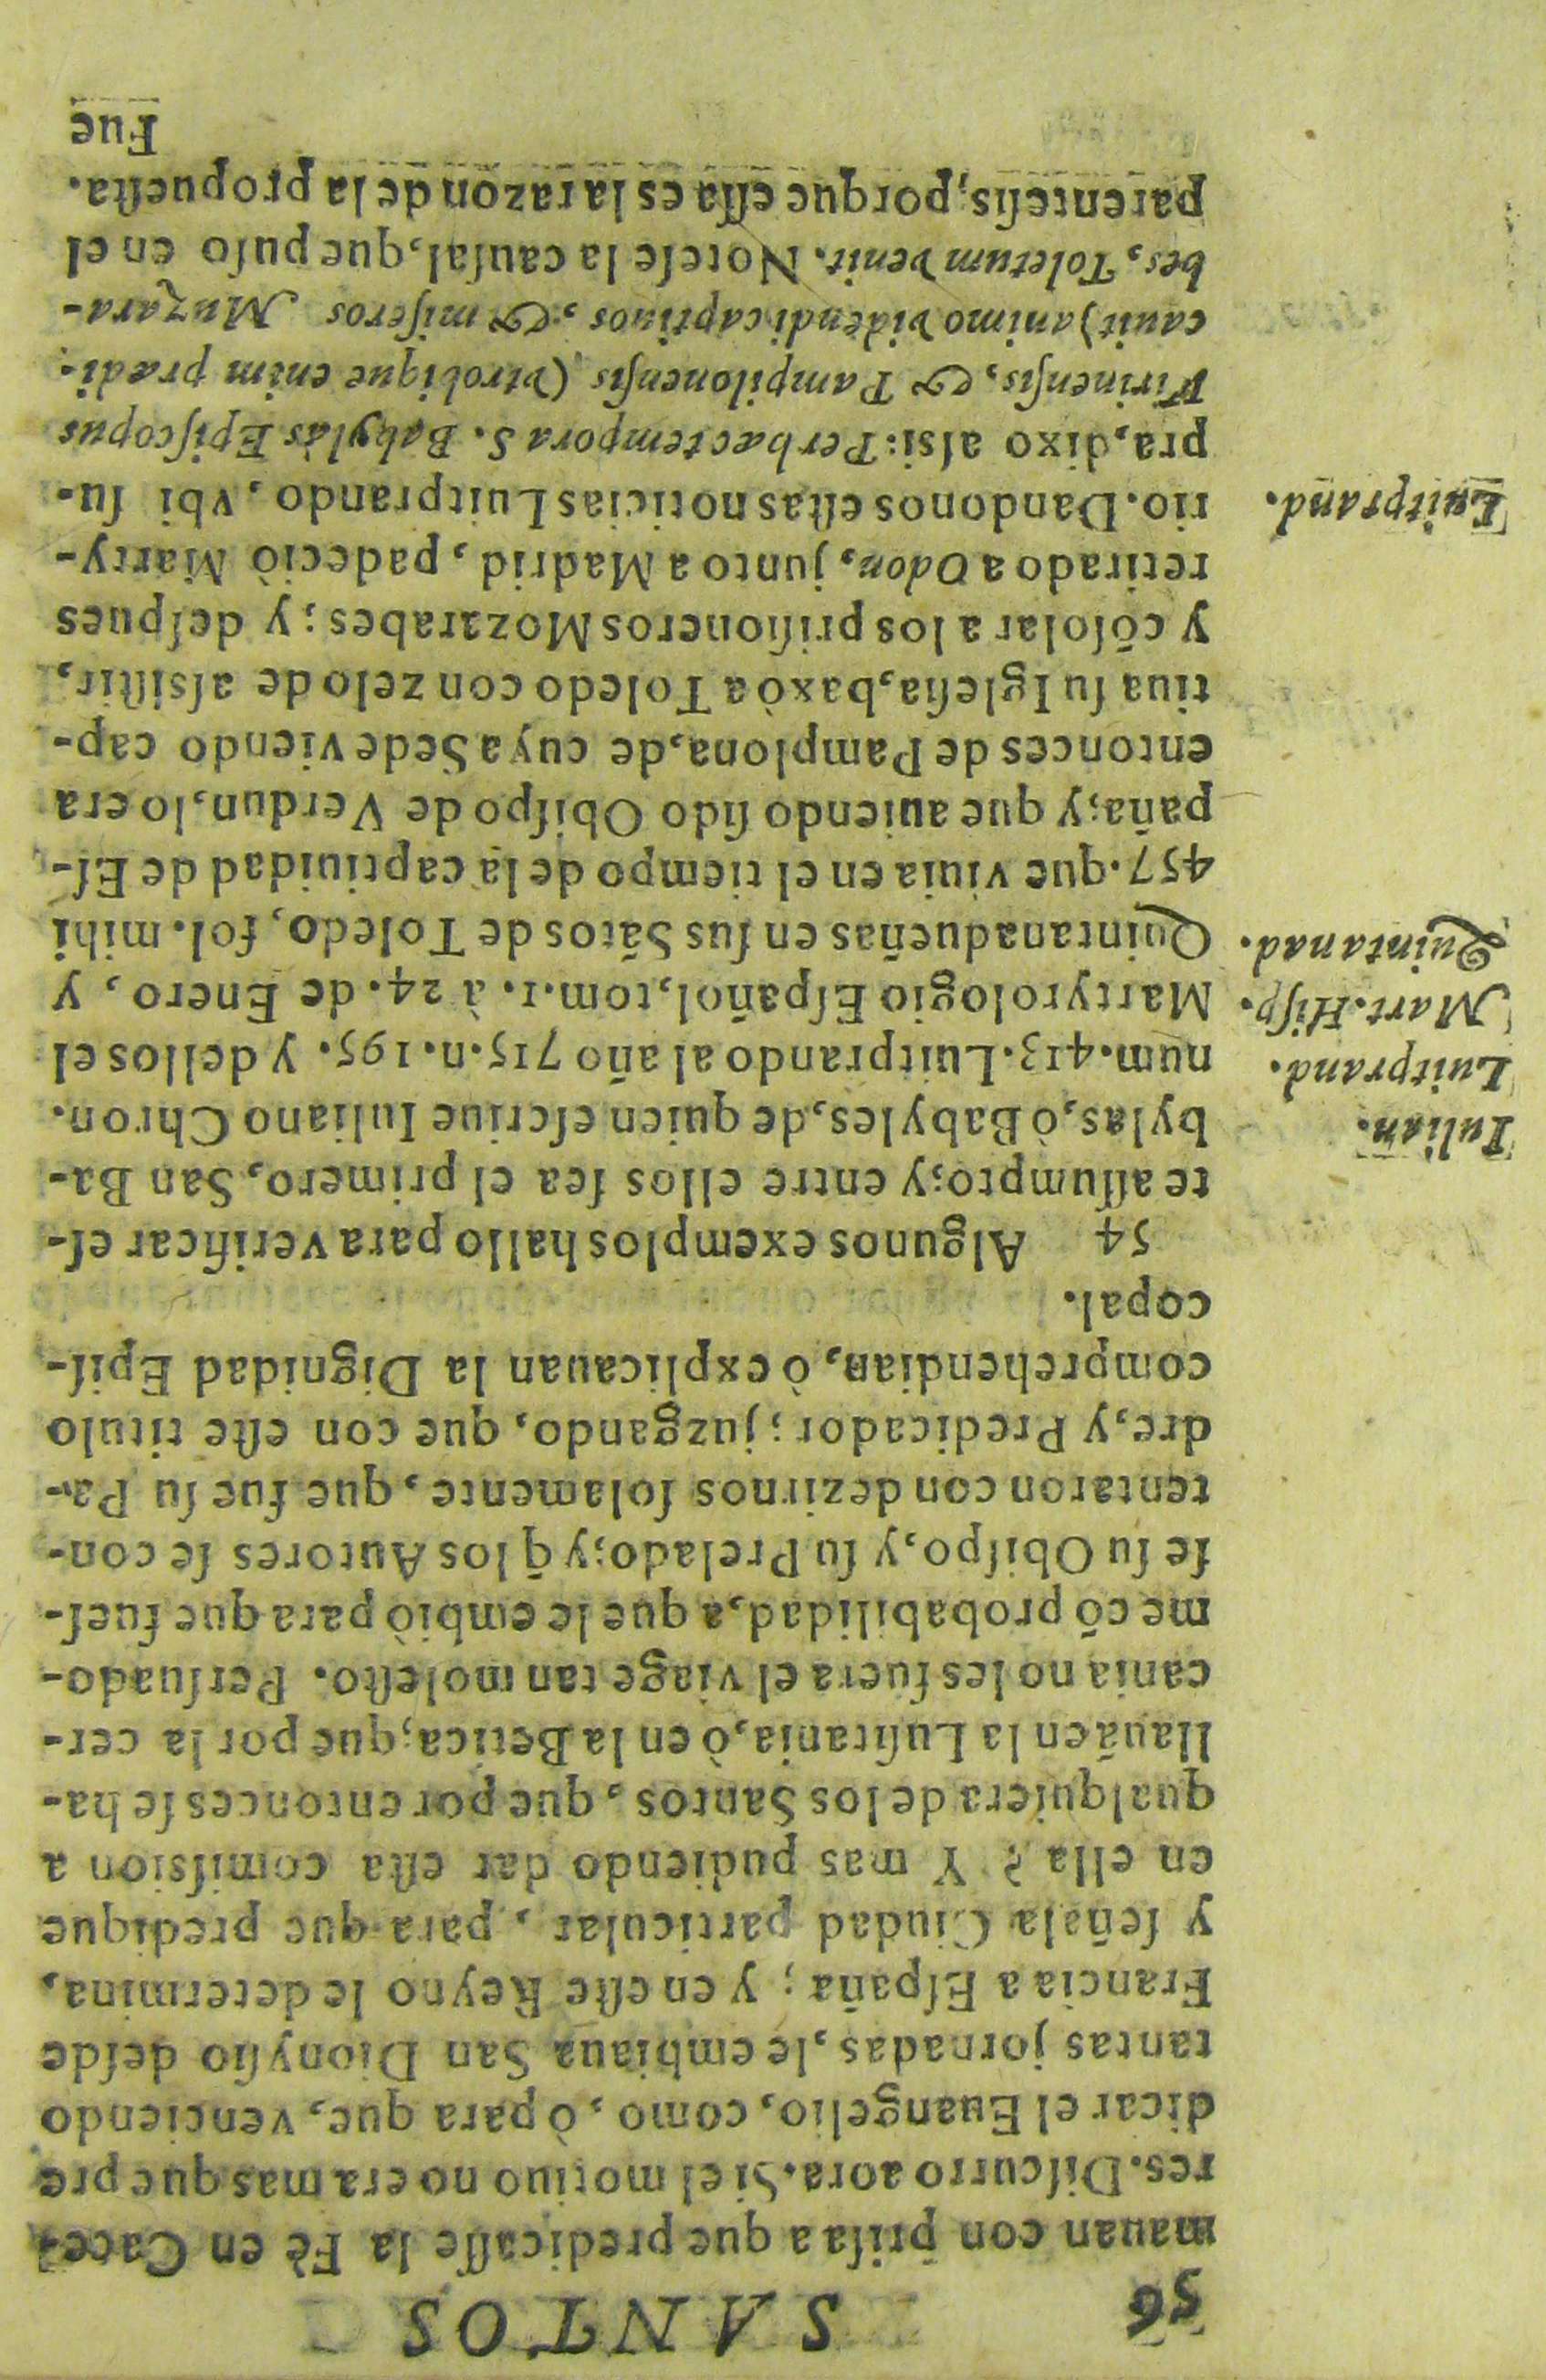 56 SANTOS
mauan con priſa a que predicaſſe la Fè en Cace-
res. Diſcurro aora. Si el motiuo no era mas que pre
dicar el Euangelio, como, ò para que, venciendo
tantas jornadas, le embiaua San Dionyſio deſde
Francia a Eſpaña; y en eſte Reyno le determina,
y ſeñala Ciudad particular, para que predique
en ella? Y mas pudiendo dar eſta comiſsion a
qualquiera de los Santos, que por entonces ſe ha-
llauã en la Luſitania, ò en la Betica; que por la cer-
cania no les fuera el viage tan moleſto. Perſuado-
me cõ probabilidad, a que le embiò para que fueſ-
ſe ſu Obiſpo, y ſu Prelado; y q̃ los Autores ſe con-
tentaron con dezirnos ſolamente, que fue ſu Pa-
dre, y Predicador; juzgando, que con eſte titulo
comprehendian, ò explicauan la Dignidad Epiſ-
copal.
54 Algunos exemplos hallo para verificar eſ-
te aſſumpto; y entre ellos ſea el primero, San Ba-
bylas, ò Babyles, de quien eſcriue Iuliano Chron.
num. 413. Luitprando al año 715. n. 195. y dellos el
Martyrologio Eſpañol, tom. 1. à 24. de Enero, y
Quintanadueñas en ſus Sãtos de Toledo, fol. mihi
457. que viuia en el tiempo de la captiuidad de Eſ-
paña; y que auiendo ſido Obiſpo de Verdun, lo era
entonces de Pamplona, de cuya Sede viendo cap-
tiua ſu Igleſia, baxò a Toledo con zelo de aſsiſtir,
y cõſolar a los priſioneros Mozarabes; y deſpues
retirado a Odon, junto a Madrid, padeciò Marty-
rio. Dandonos eſtas noticias Luitprando, vbi ſu-
pra, dixo aſsi: Per hæc tempora S. Babylàs Epiſcopus
Virinenſis, & Pampilonenſis (vtrobique enim prædi-
cauit) animo vidēndi captiuos, & miſeros Muzara-
bes, Toletum venit. Noteſe la cauſal, que puſo en el
parenteſis, porque eſſa es la razon de la propueſta.
Fue
Iulian.
Luitprand.
Mart. Hiſp.
Quintanad.
Luitprand.